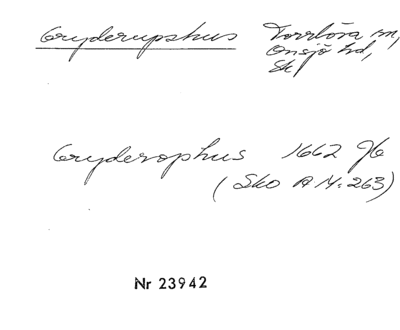 Gryderupshus Torrlösa sn,
Onsjö hd,
Sk
Gryderophus 1662 Jb
(Sko A IV:263)
Nr 23942